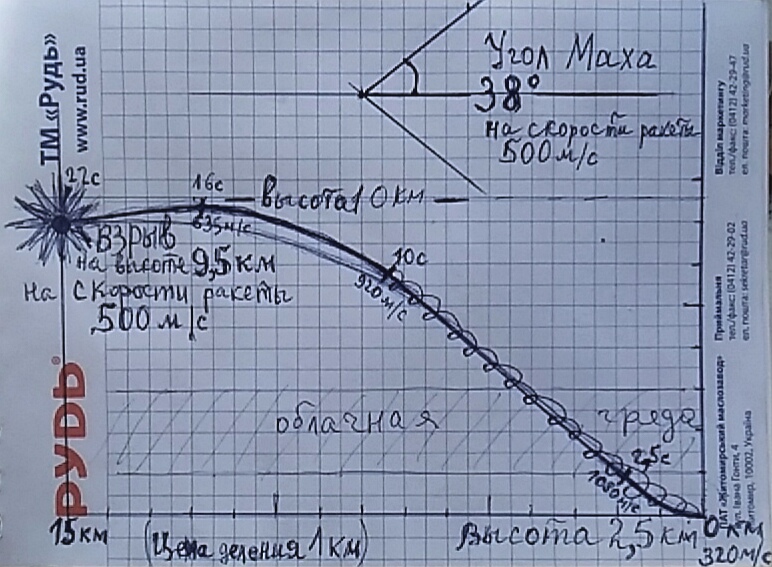 Угол Маха
38°
на скорости ракеты
500 м/с
22с
16с
высота 10 км
635 м/с
ВЗРЫВ
на высоте 9,5 км
на скорости ракеты
500 м/с
10с
920 м/с
облачная гряда
2,5с
1080 м/с
15 км
(Цена деления 1 км)
Высота 2,5 км
0 км
320 м/с
ТМ «Рудь»
www.rud.ua
РУДЬ®
Відділ маркетингу
тел./факс: (0412) 42-29-47
ел. пошта: marketing@rud.ua
Приймальня
тел./факс: (0412) 42-29-02
ел. пошта: sekretar@rud.ua
ПАТ «Житомирський маслозавод»
вул. Івана Гонти, 4
Житомир, 10002, Україна